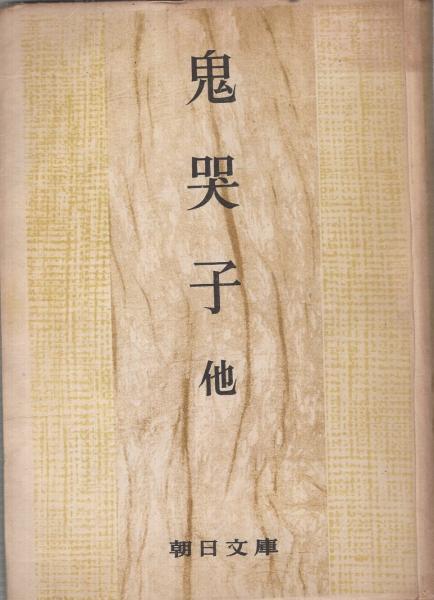 鬼哭子他
朝日文庫